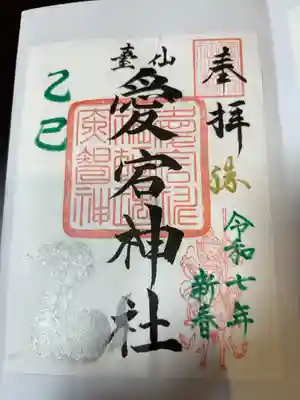 奉拝
令和七年
新春
仙臺
愛宕神社
乙巳